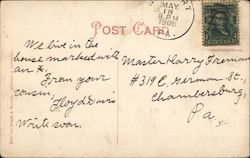 POST CARD
MAY
18
8 PM
1906
PA.
We live in the
house marked with
an X.
From your
cousin,
Floyd Davis
Write soon.
Master Harry Freeman
#319 E. German St.,
Chambersburg,
Pa.